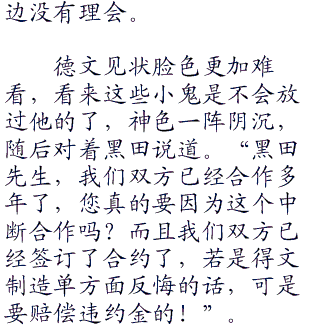 边没有理会。
德文见状脸色更加难
看，看来这些小鬼是不会放
过他的了，神色一阵阴沉，
随后对着黑田说道。“黑田
先生，我们双方已经合作多
年了，您真的要因为这个中
断合作吗？而且我们双方已
经签订了合约了，若是得文
制造单方面反悔的话，可是
要赔偿违约金的！”。